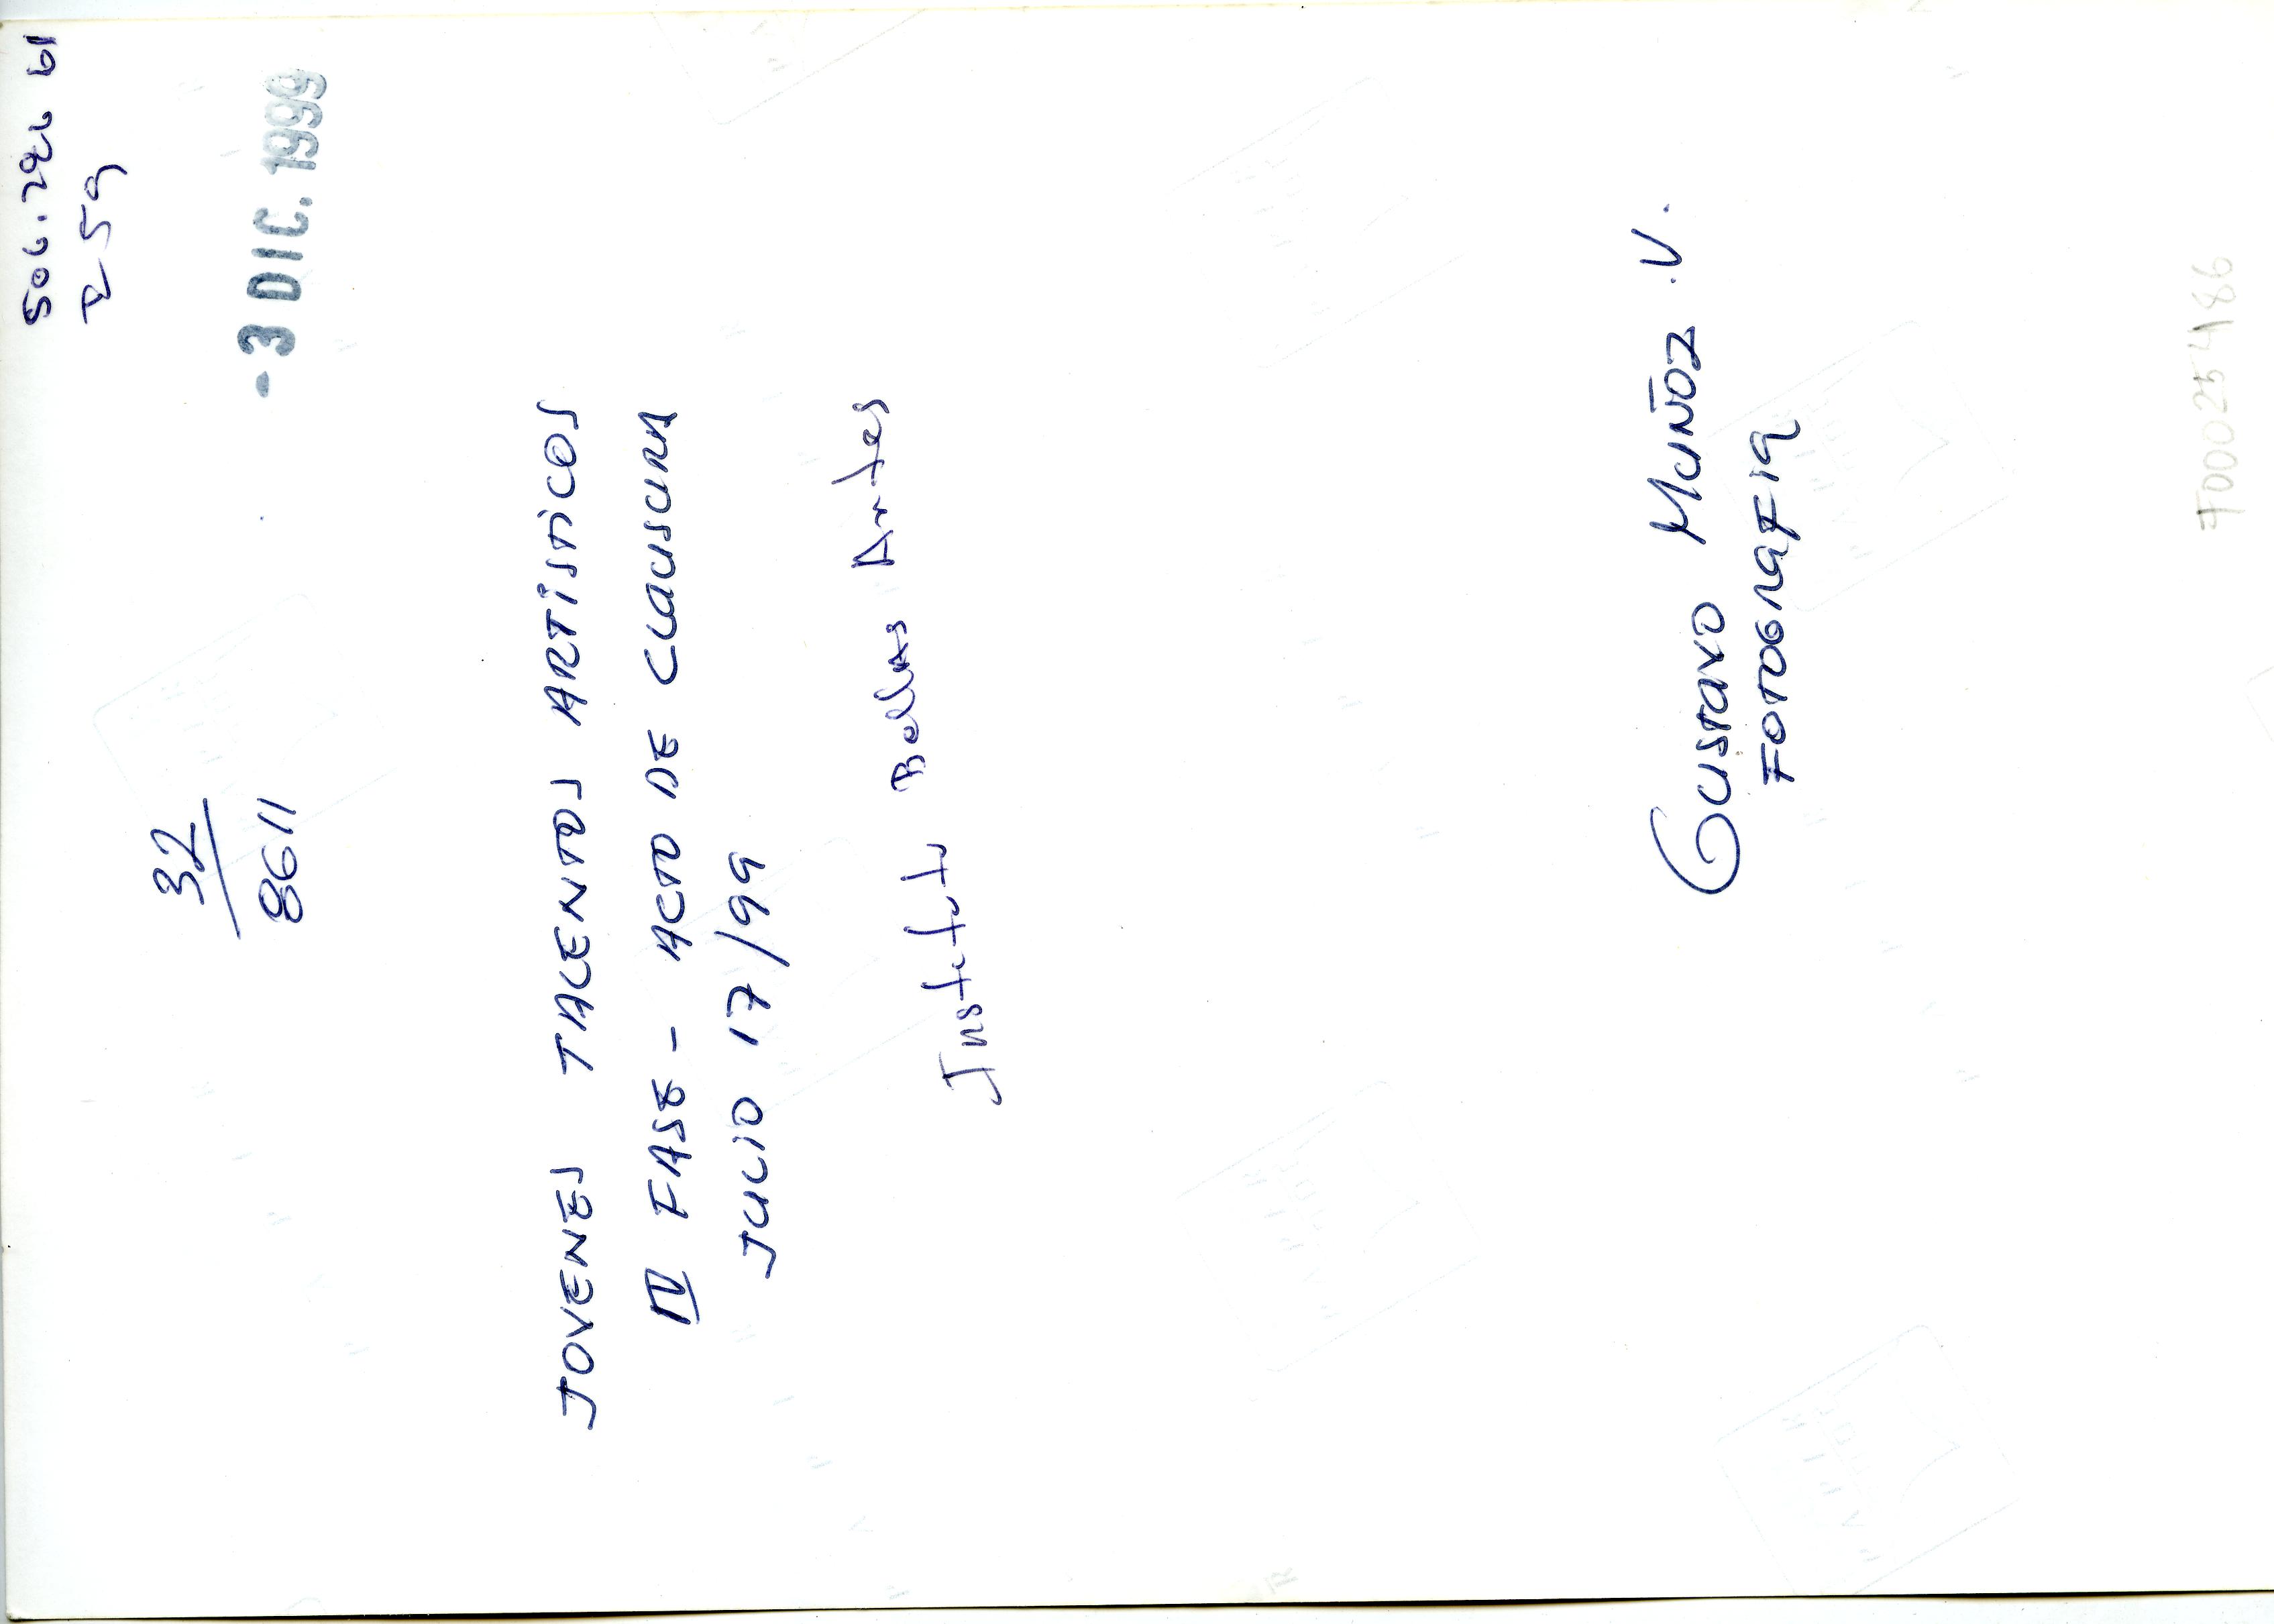 32
8611
- 3 DIC. 1999
JOVENES TALENTOS ARTÍSTICOS
IV FASE - ACTO DE CLAUSURA
JULIO 17/99
Instituto Bellas Artes
GUSTAVO MUÑOZ .V.
FOTOGRAFIA
F00025486